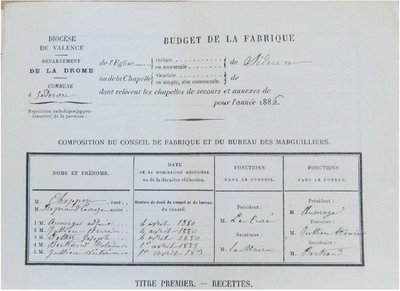 DIOCÈSE
DE VALENCE
DÉPARTEMENT
DE LA DROME
COMMUNE
à Séderon
Population catholique (approximative) de la paroisse :
BUDGET DE LA FABRIQUE
de l'Église
curiale
ou succursale
de Séderon
ou de la Chapelle
vicariale
ou simple, dite communale
de
dont relèvent les chapelles de secours et annexes de
pour l'année 1886
COMPOSITION DU CONSEIL DE FABRIQUE ET DU BUREAU DES MARGUILLIERS.
NOMS ET PRÉNOMS.
DATE
DE LA NOMINATION RÉGULIÈRE
ou de la dernière réélection.
FONCTIONS
DANS LE CONSEIL.
FONCTIONS
DANS LE BUREAU.
M. curé.
M. maire
Membres de droit du conseil et du bureau.
du conseil.
1 M. 4 avril 1880
2 M. Jullien 4 avril 1880
3 M. Joseph 4 avril 1880
4 M. Bertrand 1er avril 1883
5 M. Jullien 1er avril 183
Président :
M. Le Curé
Secrétaire :
M. Le Maire
Président :
M.
Trésorier :
M. Jullien
Secrétaire :
M. Bertrand
TITRE PREMIER. — RECETTES.